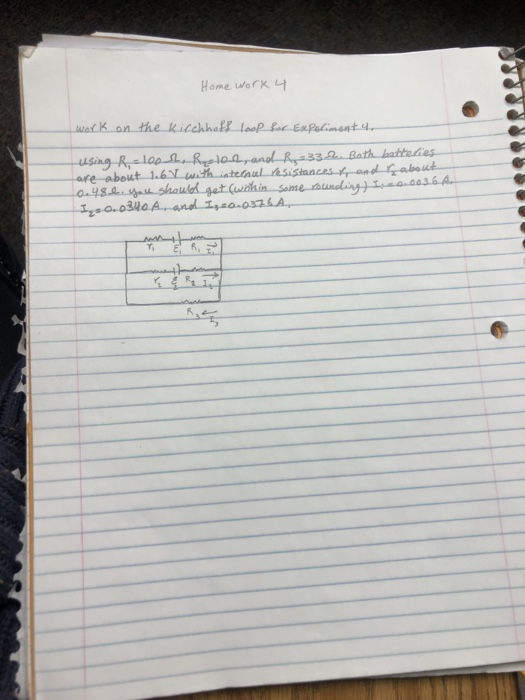 Home work 4
work on the Kirchhoff loop for Experiment 4.
using R₁=100Ω, R₂=10Ω, and R₃=33Ω. Both batteries
are about 1.6V with internal resistances r₁ and r₂ about
0.48Ω. you should get (within some rounding) I₁=0.0036A.
I₂=0.0340A, and I₃=0.0376A.
r₁ ε₁ R₁ I₁
r₂ ε₂ R₂ I₂
R₃ I₃